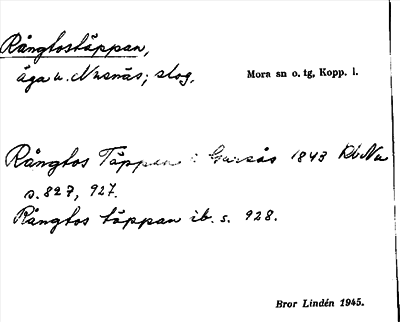 Rångtostäppan,
äga u. Nusnäs; skog. Mora sn o. tg, Kopp. l.
Rångtos Täppan i Garsås 1843 Rb Na
s. 827, 927.
Rångtos täppan ib. s. 928.
Bror Lindén 1945.